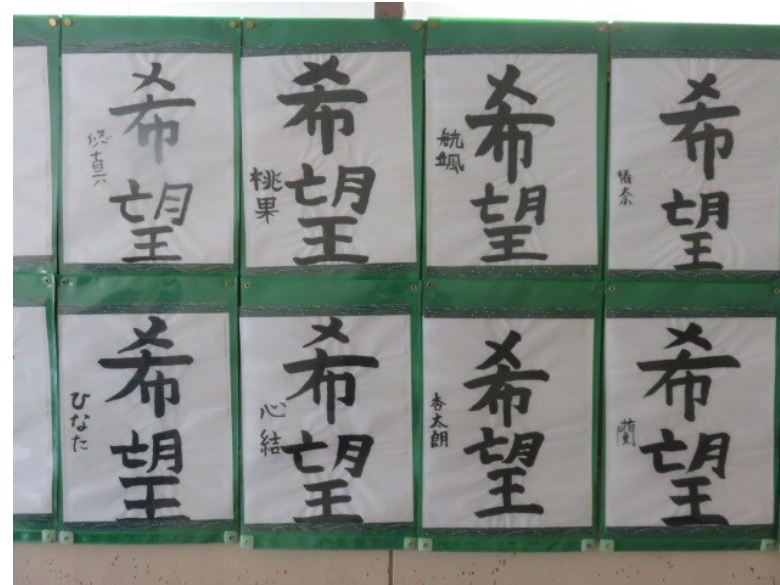 希望
悠真
希望
桃果
希望
航颯
希望
希望
ひなた
希望
心結
希望
杏太朗
希望
蘭